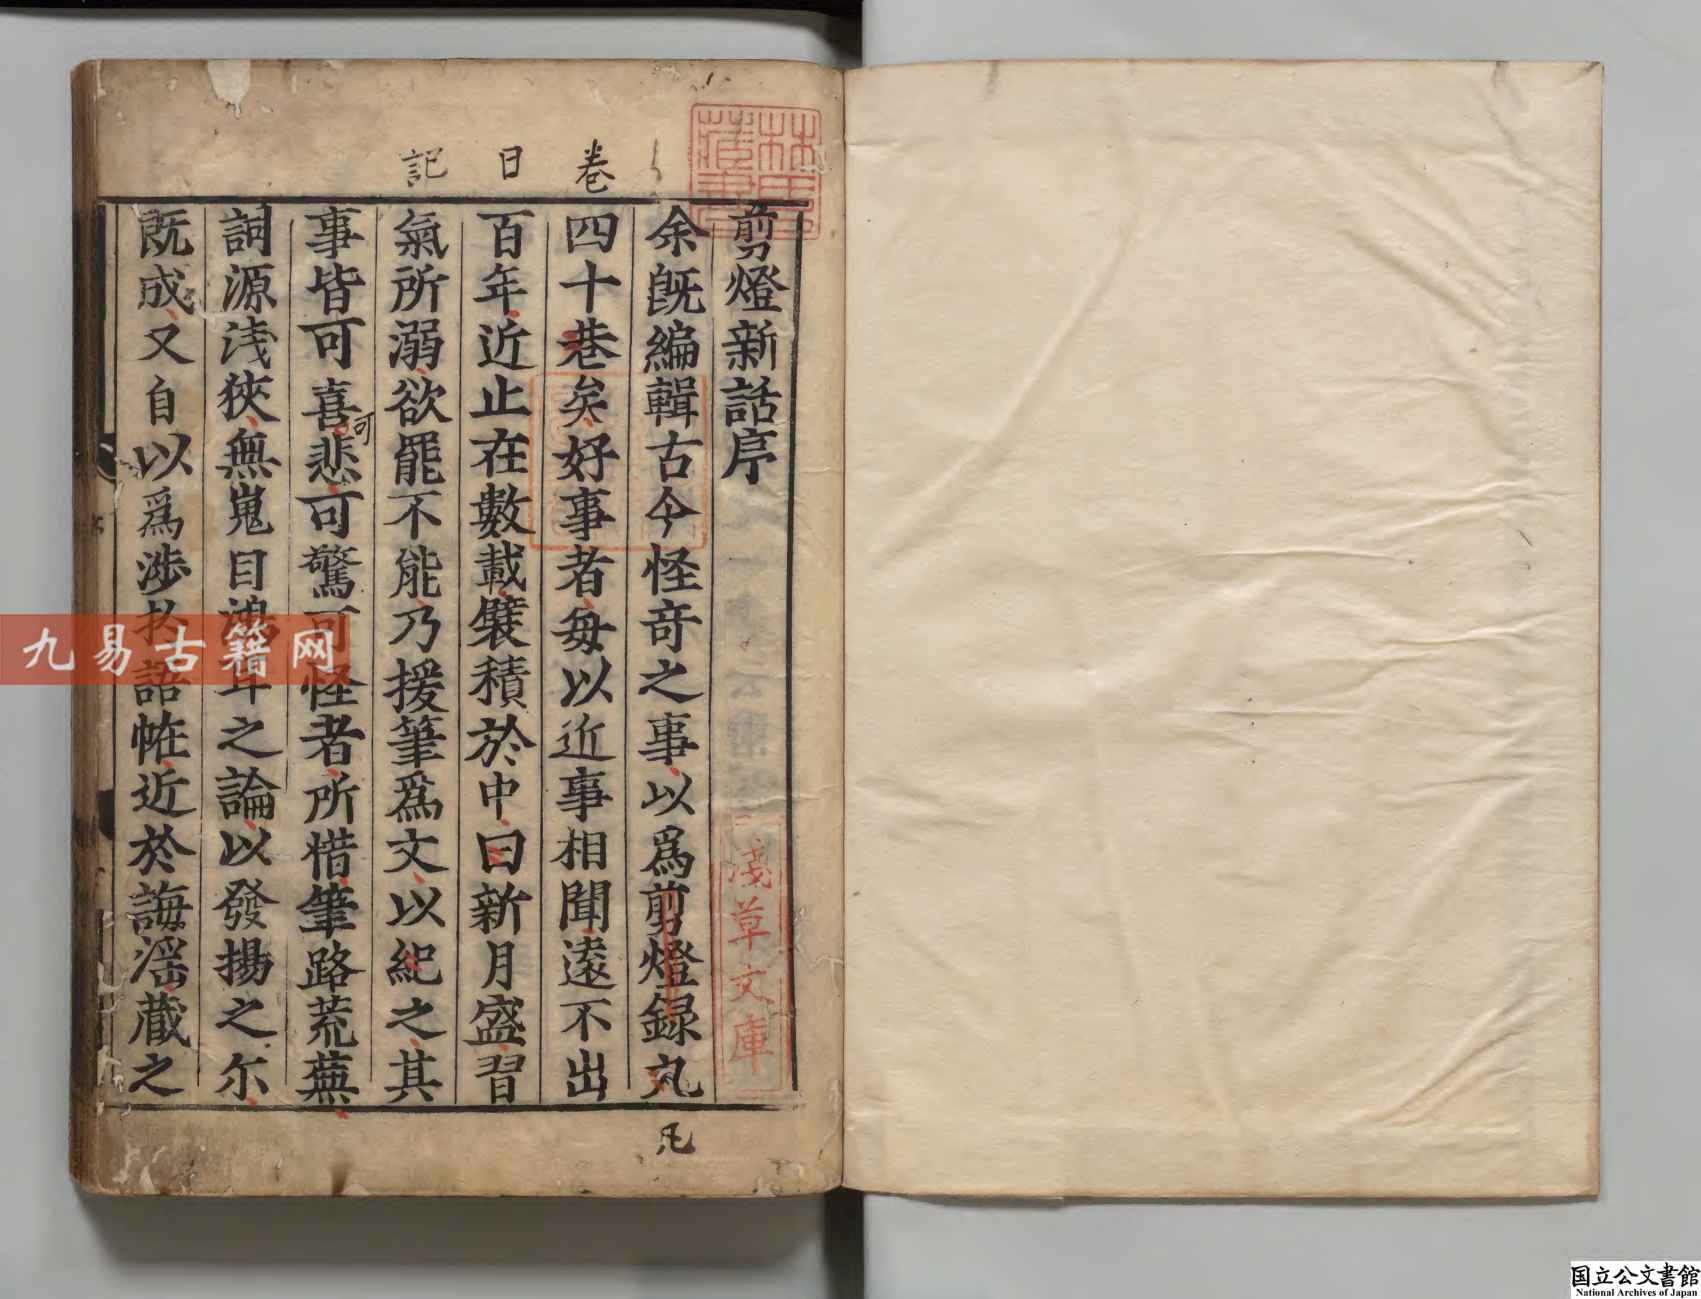 林氏
藏書
剪燈新話序
余既編輯古今怪竒之事以爲剪燈録丸
凡
四十巷矣好事者毎以近事相聞遠不出
卷
百年近止在數載襞積於中曰新月盛習
日
氣所溺欲罷不能乃援筆爲文以紀之其
記
事皆可喜悲可驚可怪者所惜筆路荒蕪
可
詞源浅狹無嵬目鴻耳之論以發揚之尓
既成又自以爲涉扵語恠近於誨淫藏之
淺草文庫
九易古籍网
国立公文書館
National Archives of Japan